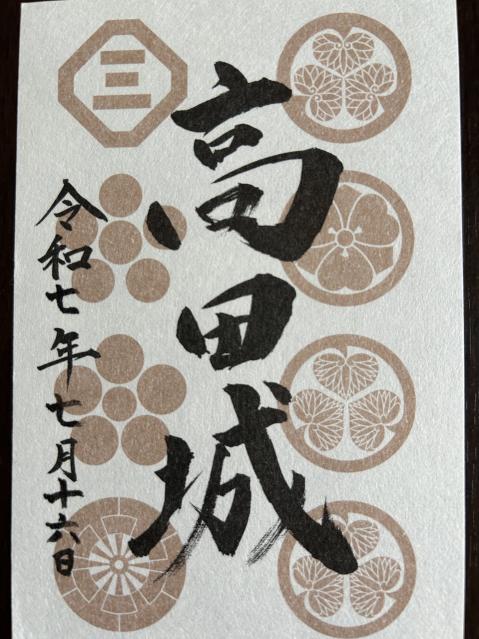 高田城
令和七年七月十六日
三